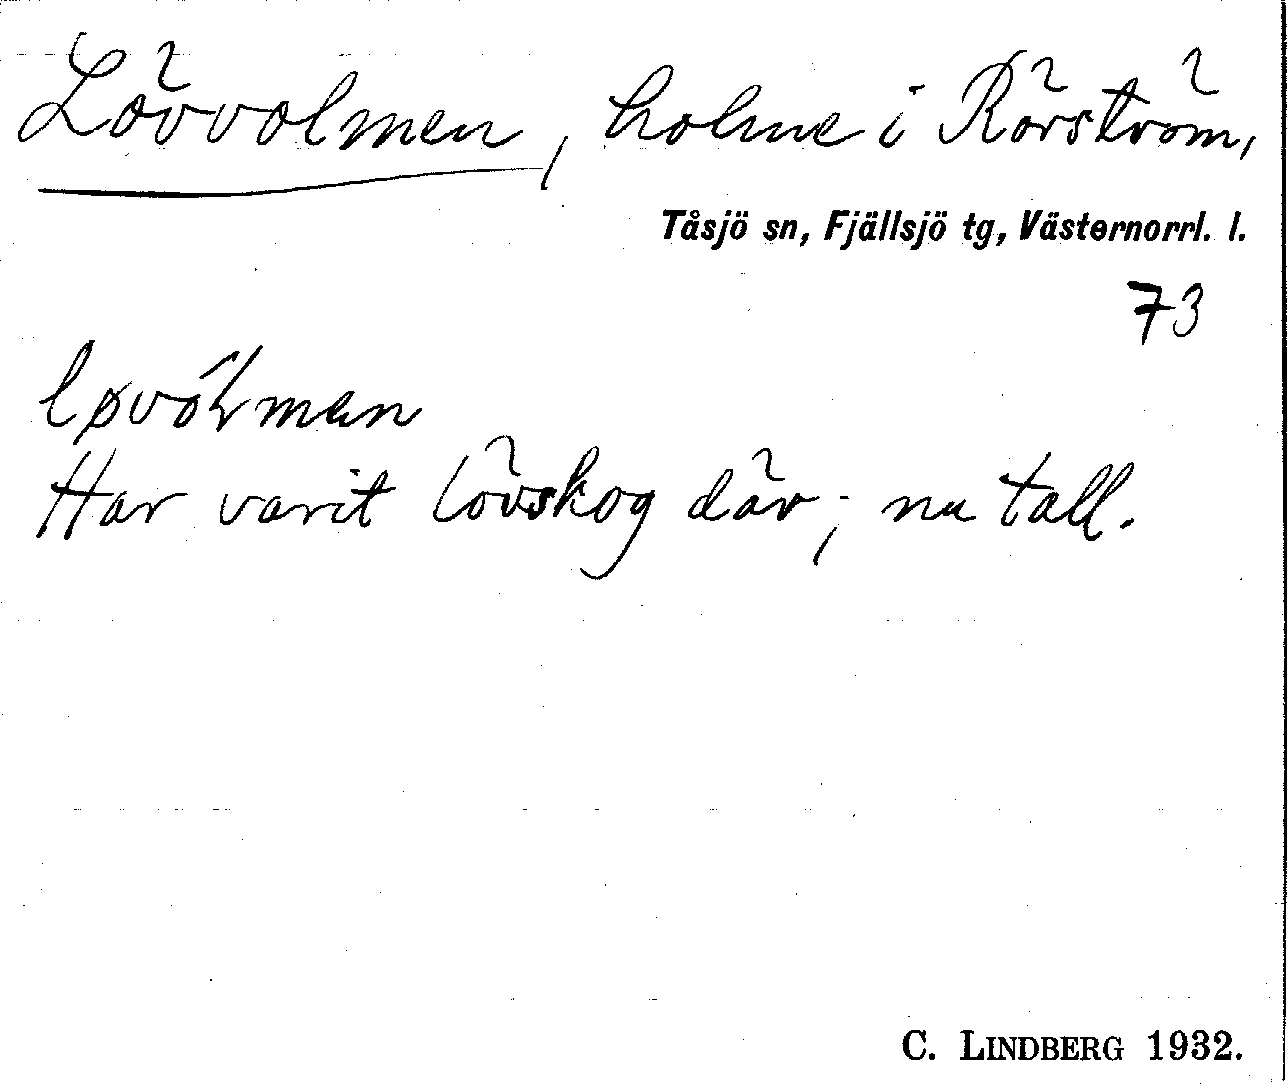 Lövvolmen, holme i Rörström,
Tåsjö sn, Fjällsjö tg, Västernorrl. l.
73
Har varit lövskog där; nu tall.
C. LINDBERG 1932.